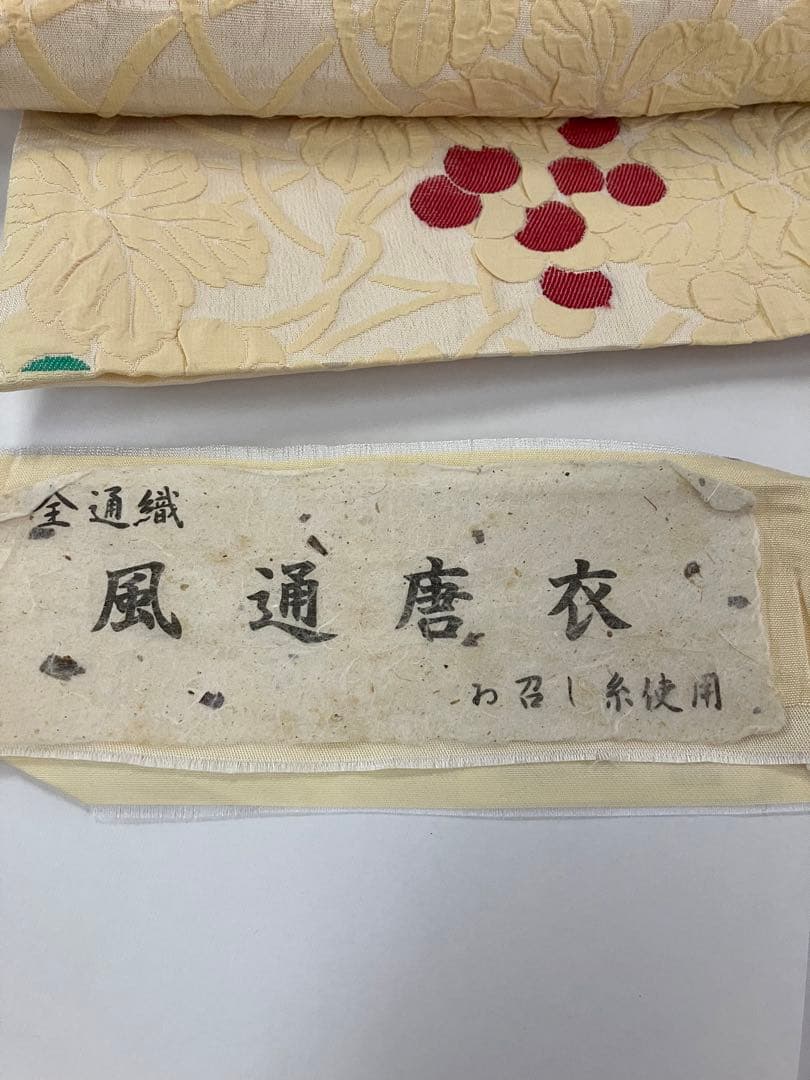 全通織
風通唐衣
お召し糸使用